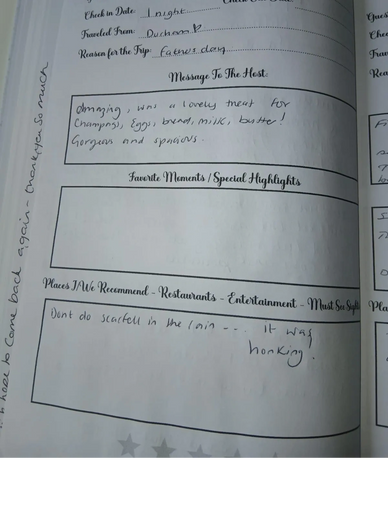 Check in Date: 1 night
Traveled From: Durham
Reason for the Trip: Fathers day
Message To The Host:
Amazing, was a lovely treat for
Champas, Eggs, bread, milk, butter!
Gorgeous and spacious.
Favorite Moments / Special Highlights
Places I/We Recommend - Restaurants - Entertainment - Must See
Dont do scarfell in the rain - - - It was
honking!
hope to come back again - thankyou so much